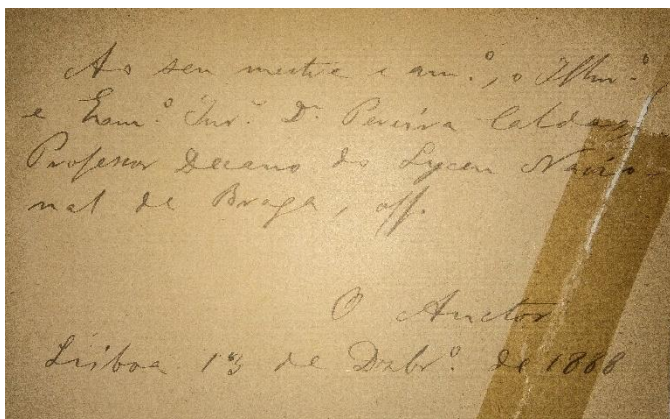 Ao seu mestre e am.º, o Illm.º
e Exam.º Snr.º D.r Pereira Caldas,
Professor Decano do Lyceu Nacio-
nal de Braga, off.
O Auctor
Lisboa 13 de Dzbr.º de 1888